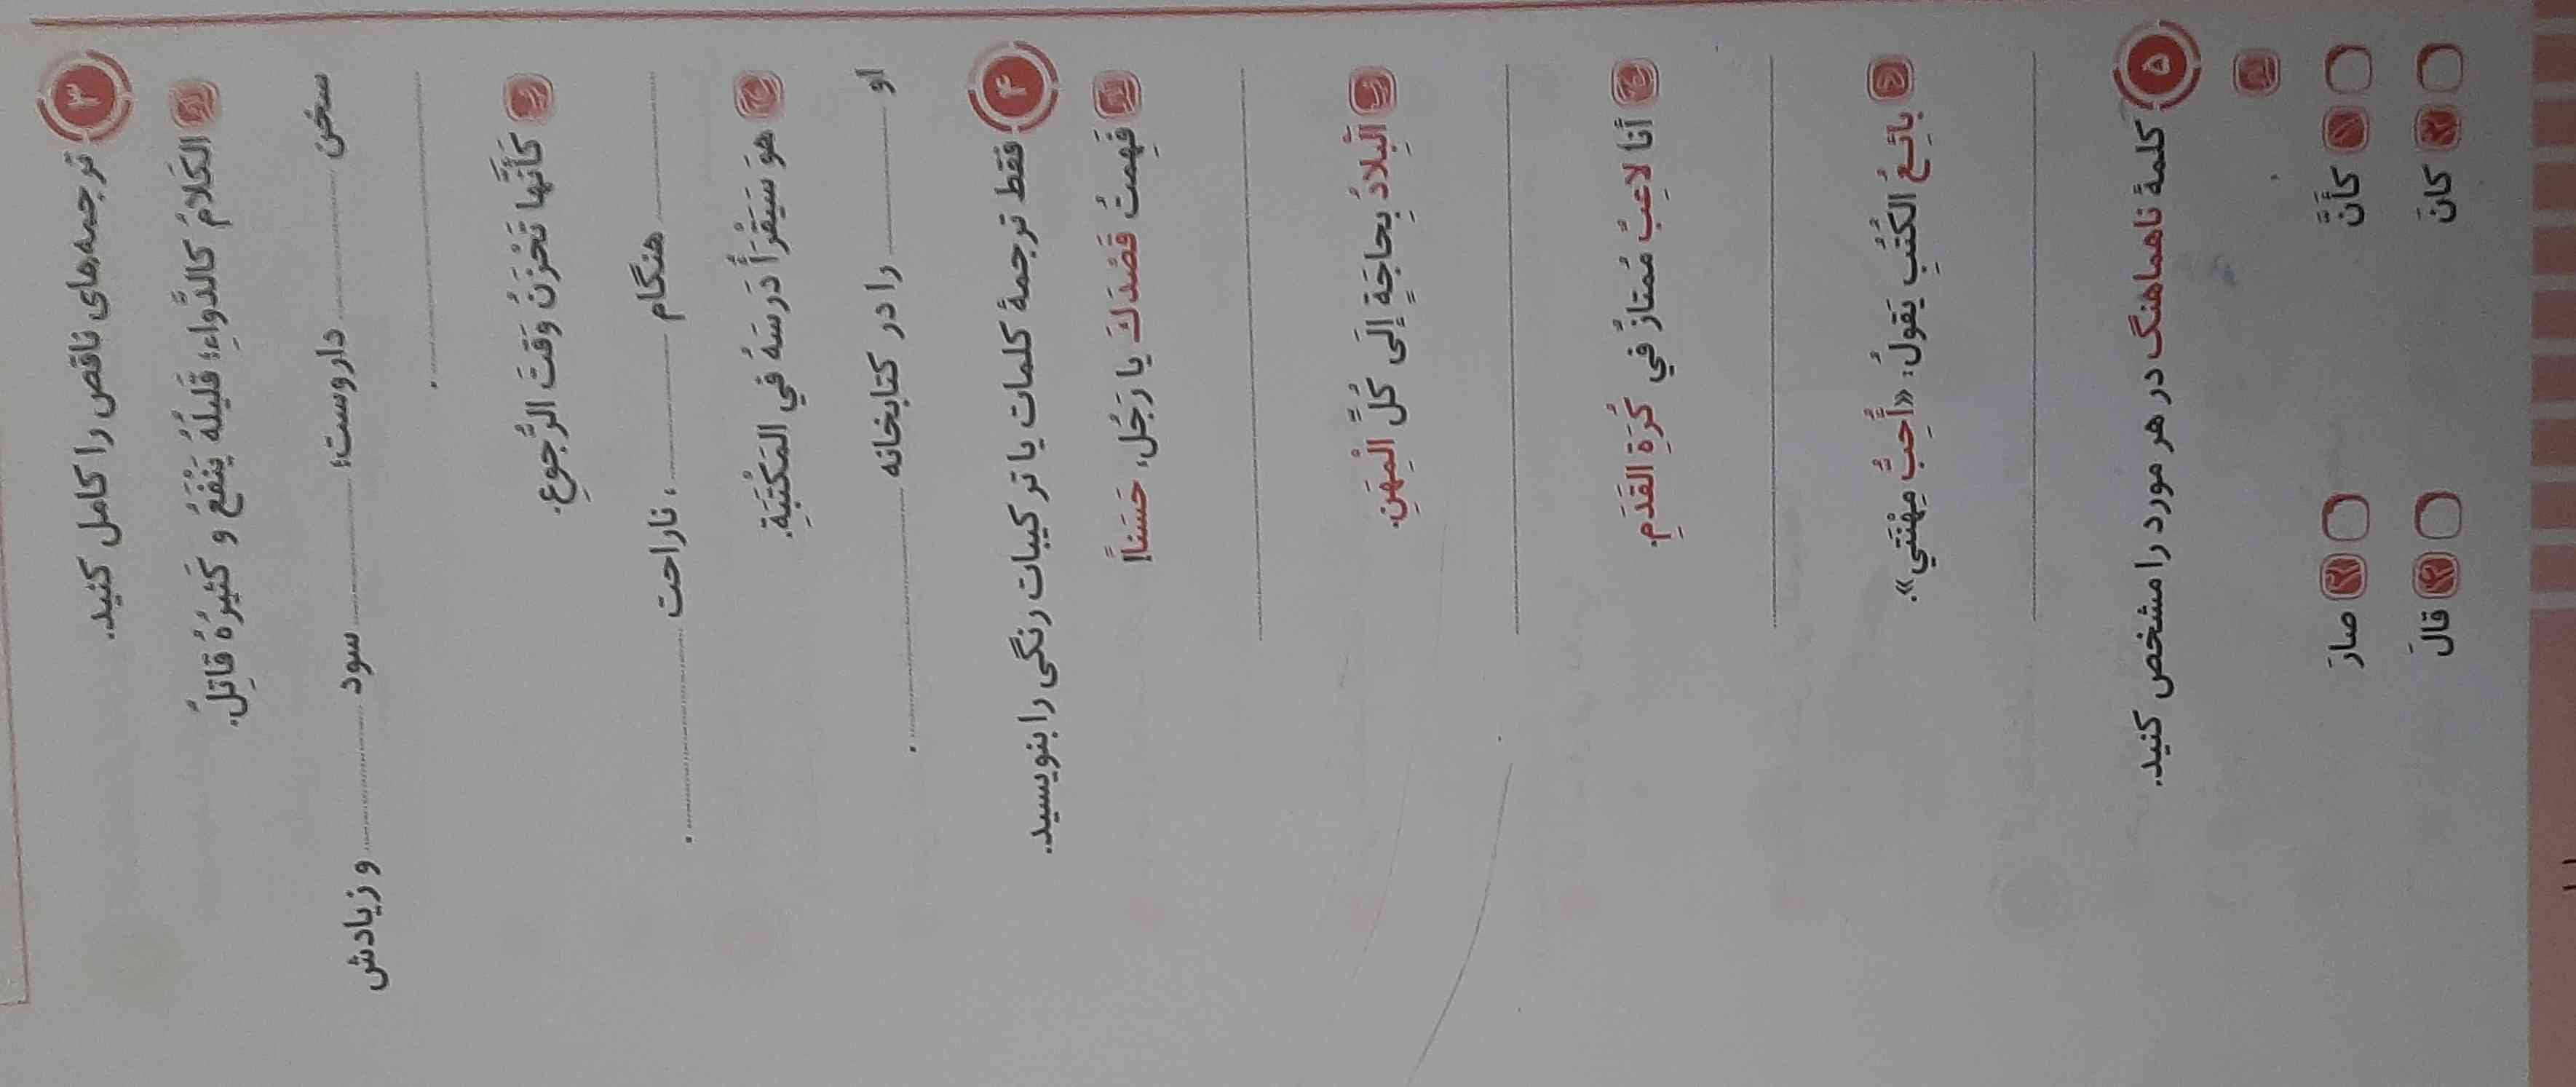 ۳ ترجمه‌های ناقص را کامل کنید.
الف الکَلامُ کَالدَّواءِ؛ قَلیلُهُ یَنْفَعُ و کَثیرُهُ قاتِلٌ.
سخن ............ داروست؛ ............ سود ............ و زیادش
............ .
ب کَأَنَّها تَحْزَنُ وَقتَ الرُّجوعِ.
............ هنگام ............، ناراحت ............ .
ج هوَ سَیَقْرَأُ دَرسَهُ فِي المَکْتَبَةِ.
او ............ را در کتابخانه ............ .
۴ فقط ترجمهٔ کلمات یا ترکیبات رنگی را بنویسید.
الف فَهِمتُ قَصْدَكَ یا رَجُل، حَسَناً!
ب اَلْبِلادُ بِحاجَةٍ إلَی کُلِّ الْمِهَنِ.
ج أنا لاعِبٌ مُمتازٌ في کُرَةِ القَدَمِ.
د بائِعُ الکُتُبِ یَقولُ: «أُحِبُّ مِهْنَتي».
۵ کلمهٔ ناهماهنگ در هر مورد را مشخص کنید.
الف
۱ کَأَنَّ ۲ صارَ
۳ کانَ ۴ قالَ